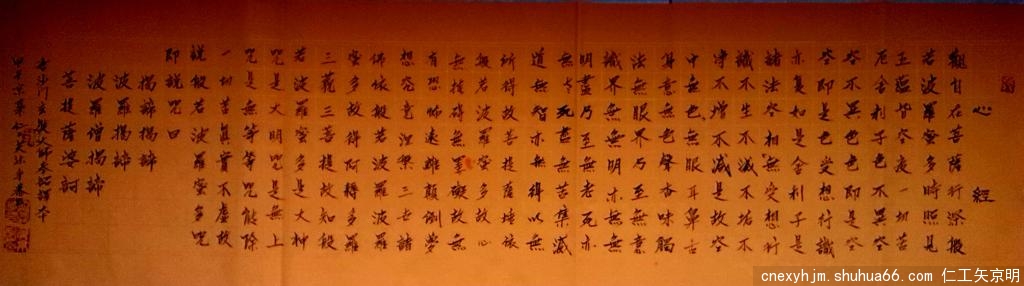 心經
觀自在菩薩行深般
若波羅蜜多時照見
五蘊皆空度一切苦
厄舍利子色不異空
空不異色色即是空
空即是色受想行識
亦復如是舍利子是
諸法空相無受想行
識不生不滅不垢不
淨不增不減是故空
中無色無眼耳鼻舌
身意無色聲香味觸
法無眼界乃至無意
識界無無明亦無無
明盡乃至無老死亦
無老死盡無苦集滅
道無智亦無得以無
所得故菩提薩埵依
般若波羅蜜多故心
無掛礙無罣礙故無
有恐怖遠離顛倒夢
想究竟涅槃三世諸
佛依般若波羅波羅
蜜多故得阿耨多羅
三藐三菩提故知般
若波羅蜜多是大神
咒是大明咒是無上
咒是無等等咒能除
一切苦真實不虛故
說般若波羅蜜多咒
即說咒曰
揭諦揭諦
波羅揭諦
波羅僧揭諦
菩提薩婆訶
cnexyhjm.shuhua66.com 仁工矢京明